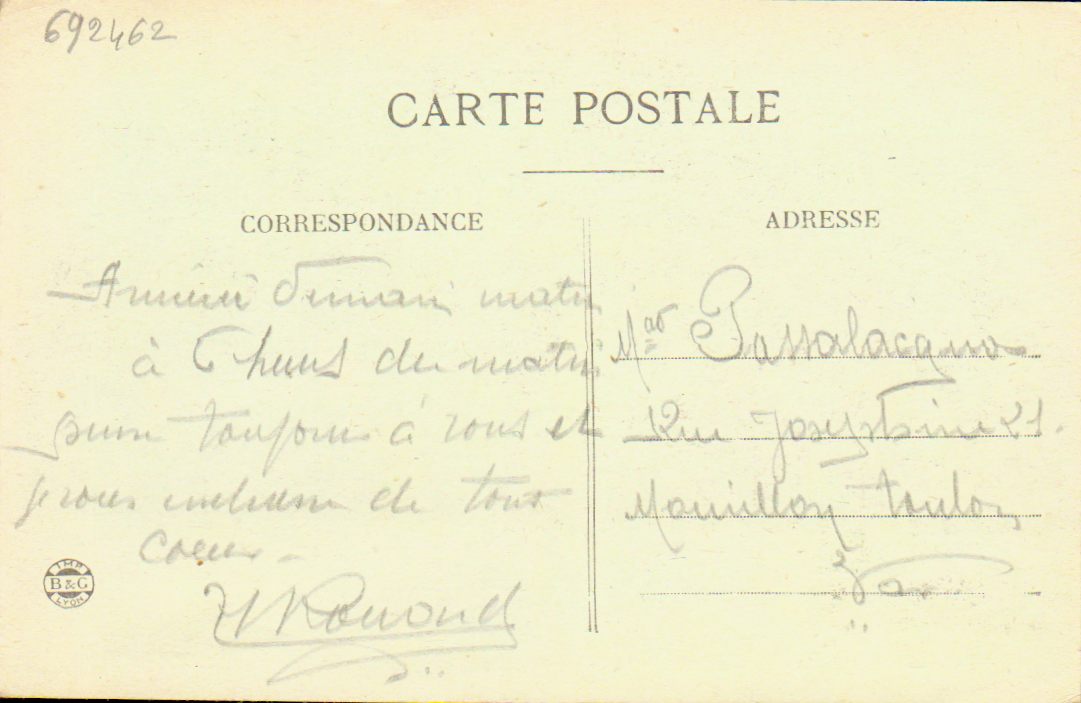 692462
CARTE POSTALE
CORRESPONDANCE
ADRESSE
demain matin
à 6 heures du matin
pense toujours à vous et
je vous embrasse de tout
coeur -
Mad Passalacqua
Rue Joséphine 21.
Mourillon Toulon
Var
IMP
B & G
LYON